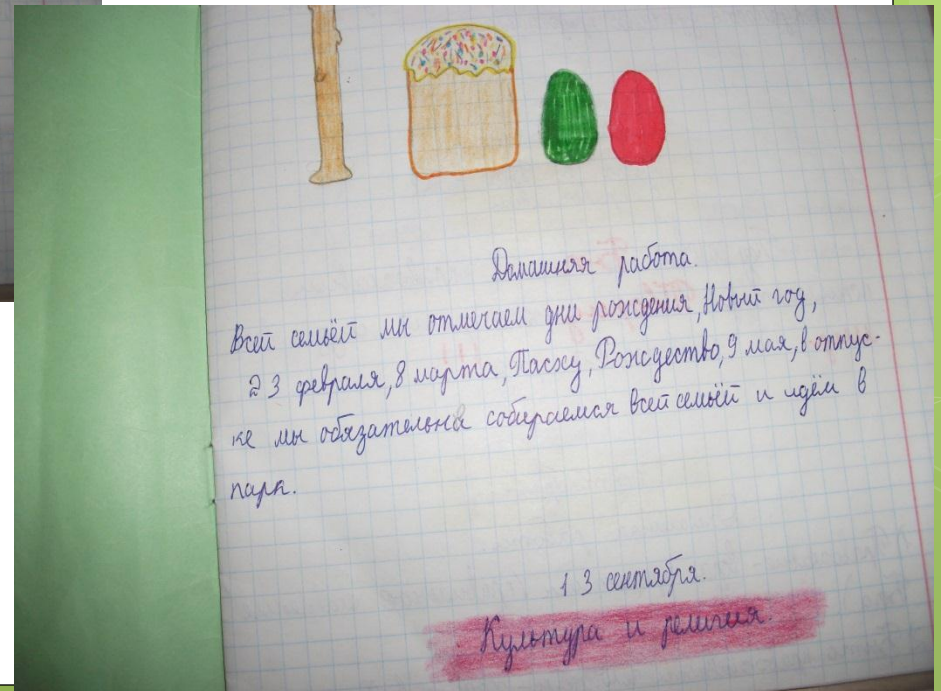 Домашняя работа.
Всей семьёй мы отмечаем дни рождения, Новый год,
23 февраля, 8 марта, Пасху, Рождество, 9 мая, в отпус-
ке мы обязательна собираемся всей семьёй и идём в
парк.
13 сентября.
Культура и религия.